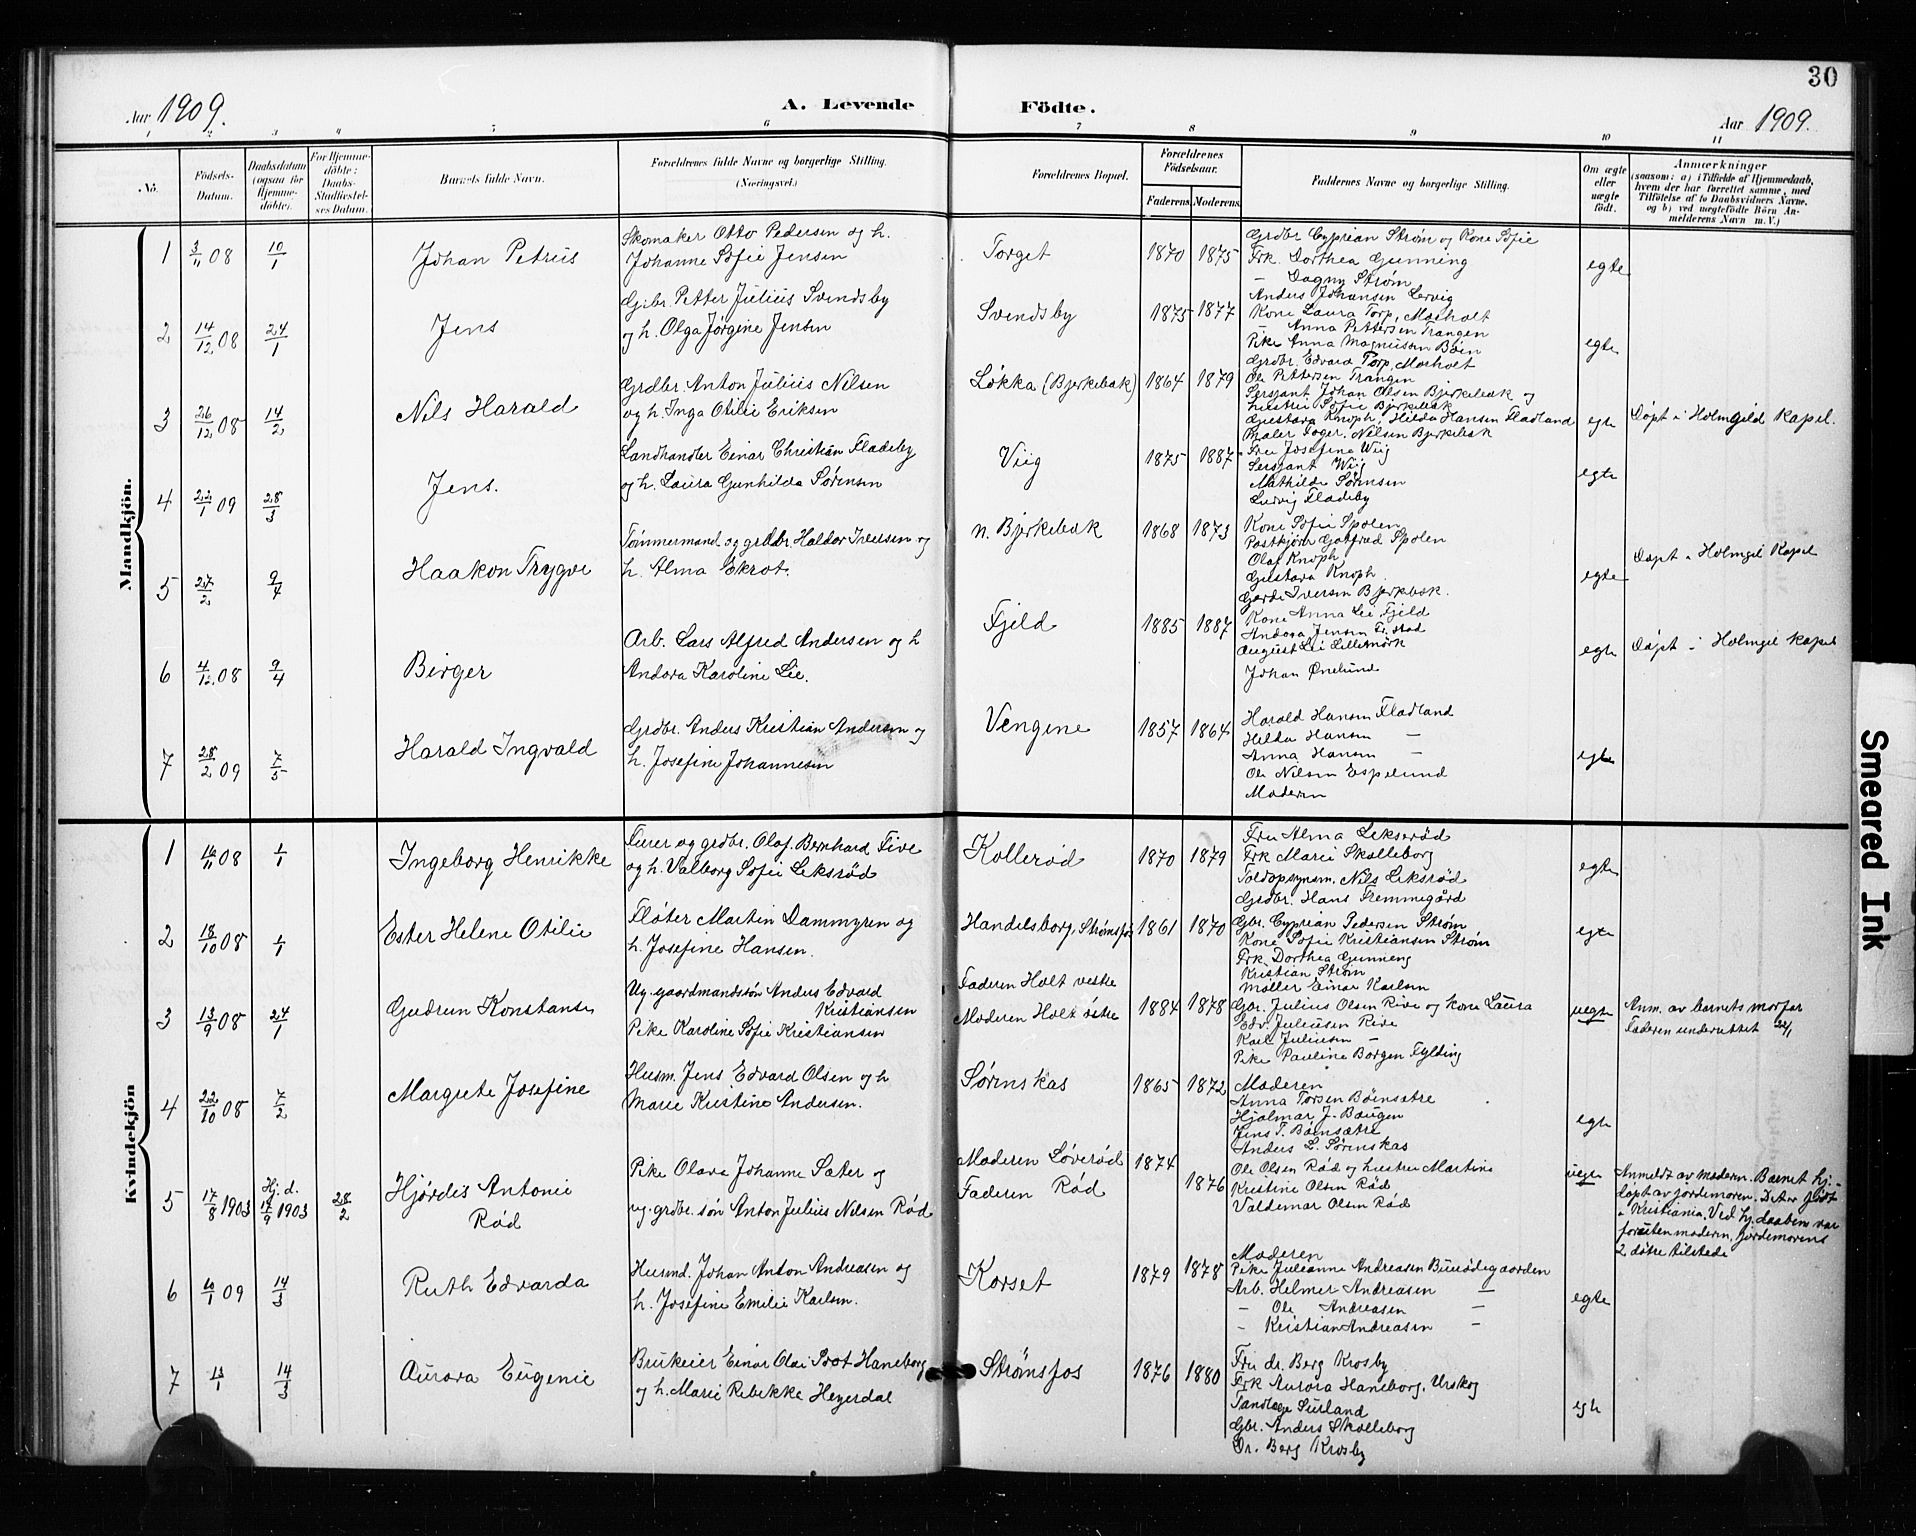 30
Aar 1909.
A. Levende
Födte.
Aar 1909.
1 2 3 4 5 6 7 8 9 10 11
No.
Födsels-Datum.
Daabsdatum (ogsaa for Hjemme-döbte).
For Hjemme-döbte: Daabs-Stadfæstel-ses Datum.
Barnets fulde Navn.
Forældrenes fulde Navne og borgerlige Stilling.
(Næringsvei.)
Forældrenes Bopæl.
Forældrenes Födselsaar.
Faderens Moderens
Faddernes Navne og borgerlige Stilling.
Om ægte eller uægte födt.
Anmærkninger
(saasom: a) i Tilfælde af Hjemmedaab,
hvem der har forrettet samme, med
Tilföielse af to Daabsvidners Navne,
og b) ved uægtefödte Börn An-
melderens Navn m. V.)
Mandkjön.
1 3/11 08 10/1 Johan Petrus
Skomaker Otto Pedersen og h.
Johanne Sofie Jensen
Torget 1870 1875
Grdbr Cyprian Strøm og Kone Sofie
Frk. Dorthea Gunning
— Dagny Strøm
Anders Johansen Lervig
egte
2 14/12 08 24/1 Jens
Gibr. Petter Julius Svendsby
og h. Olga Jørgine Jensen
Svendsby 1875 1877
Kone Laura Torp, Moeholt
— Anna Pettersen Trangen
Pike Anna Magnussen Bøen
Grdbr. Edvard Torp, Moeholt
Ole Pettersen Trangen
egte
3 26/12 08 14/2 Nils Harald
Grdbr Anton Julius Nilsen
og h. Inga Otilie Eriksen
Løkka (Bjerkebæk) 1864 1879
Sersjant Johan Olsen Bjerkebæk og
hustru Sofie Bjerkebæk
Gustava Knoph, Hilda Hansen Fladland
Thaler Roger Nilsen Bjerkebæk
egte
Døpt i Holmgild Kapel.
4 22/1 09 28/3 Jens.
Landhandler Einar Christian Fladeby
og h. Laura Gunhilda Sørensen
Viig 1875 1887
Fru Josefine Wiig
Sersjant Wiig
Mathilde Sørensen
Ludvig Fladeby
egte
5 27/2 9/4 Haakon Trygve
Tømmermand og grdbr. Haldor Iversen og
h. Alma Ekrot.
n. Bjerkebæk 1868 1873
Kone Sofie Spolen
Postkjørn Gotfred Spolen
Olaf Knoph
Gustava Knoph
Gerda Iversen Bjerkebæk.
egte
Døpt i Holmgil Kapel
6 4/12 08 9/4 Birger
Arb. Lars Alfred Andersen og h
Andora Karoline Lie.
Fjeld 1885 1887
Kone Anna Lie Fjeld
Andora Jensen Fr.stad
August Lie Lillemørk
Johan Ønelund
egte
Døpt i Holmgil Kapel
7 28/2 09 7/5 Harald Ingvald
Grdbr. Anders Kristian Andersen og
h. Josefine Johannesen
Vengene 1857 1864
Harald Hansen Fladland
Hilda Hansen —
Anna Hansen —
Ole Nilsen Espelund
Moderen
egte
Kvindekjön
1 16/11 08 1/1 Ingeborg Henrikke
Furer og grdbr. Olaf Bernhard Five
og h. Valborg Sofie Leksrød
Kollerød 1870 1879
Fru Alma Lekserød
Frk Marie Skolleborg
Toldopsynsm. Nils Leksrød
Grdbr. Hans Fremmegård
egte
2 18/10 08 1/1 Ester Helene Otilie
Fløter Martin Dammyren og
h. Josefine Hansen.
Handelsborg, Strømsfos 1861 1870
Gbr. Cyprian Pedersen Strøm
Kone Sofie Kristiansen Strøm
Frk. Dorthea Gunneng
Kristian Strøm
Møller Einar Karlsen
egte
3 13/9 08 24/1 Gudrun Konstanse
Ug. gaardmandssøn Anders Edvard
Kristiansen
Pike Karoline Sofie Kristiansen
Faderen Holt vestre
Moderen Holt østre 1884 1878
Gbr. Julius Olsen Rive og kone Laura
Edv. Juliusen Rive
Karl Juliusen —
Pike Pauline Borgen Fylding
uegte
Anm. av barnets morfar
Faderen underrettet 22/1
4 22/10 08 7/2 Margrete Josefine
Husm. Jens Edvard Olsen og h
Marie Kristine Andersen.
Sørenskas 1865 1872
Moderen
Anna Torsen Bøensætre
Hjalmar J. Baugen
Jens T. Bøensætre
Anders L. Sørenskas
egte
5 17/8 1903 Hj. d. 17/9 1903 28/2 Hjørdis Antonie
Rød
Pike Olava Johanne Sæter og
ug. grdbr. søn Anton Julius Nilsen Rød
Moderen Løverød 1874
Faderen Rød 1876
Ole Olsen Rød og hustru Martine
Kristine Olsen Rød
Valdemar Olsen Rød
uegte
Anmeldt av moderen. Barnet hj.-
døpt av jordemoren. Det er født
i Kristiania. Ved hj. daaben var
foruten moderen, jordemorens
2 døtre tilstede
6 10/1 09 14/3 Ruth Edvarda
Husmd. Johan Anton Andreasen og
h. Josefine Emilie Karlsen.
Korset 1879 1878
Moderen
Pike Julianne Andreasen Buerødegaarden
Arb. Helmer Andreasen —
— Ole Andreasen —
— Kristian Andreasen —
egte
7 13/1 14/3 Aurora Eugenie
Brukeier Einar Olai Soot Haneborg
og h. Marie Rebekke Heyerdal
Strømsfos 1876 1880
Fru dr. Berg Krosby
Frk Aurora Haneborg, Urskog
Tandlæge Surland
Gbr. Anders Skolleborg
Dr. Berg Krosby
egte
Smeared Ink